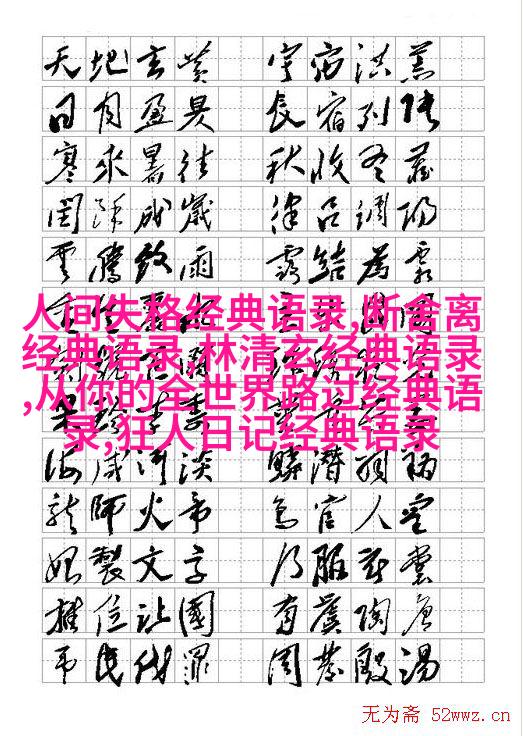 天地玄黄 宇宙洪荒
日月盈昃 辰宿列張
寒來暑往 秋收冬藏
閏餘成歲 律呂調陽
雲騰致雨 露結為霜
人间失格经典语录,断舍离
经典语录,林清玄经典语录
,从你的全世界路过经典语
录,狂人日记经典语录
海咸河淡 鱗潛羽翔
龍師火帝 鳥官人皇
始製文字 乃服衣裳
推位讓國 有虞陶唐
弔民伐罪 周發殷湯
无为斋 52wwz.cn